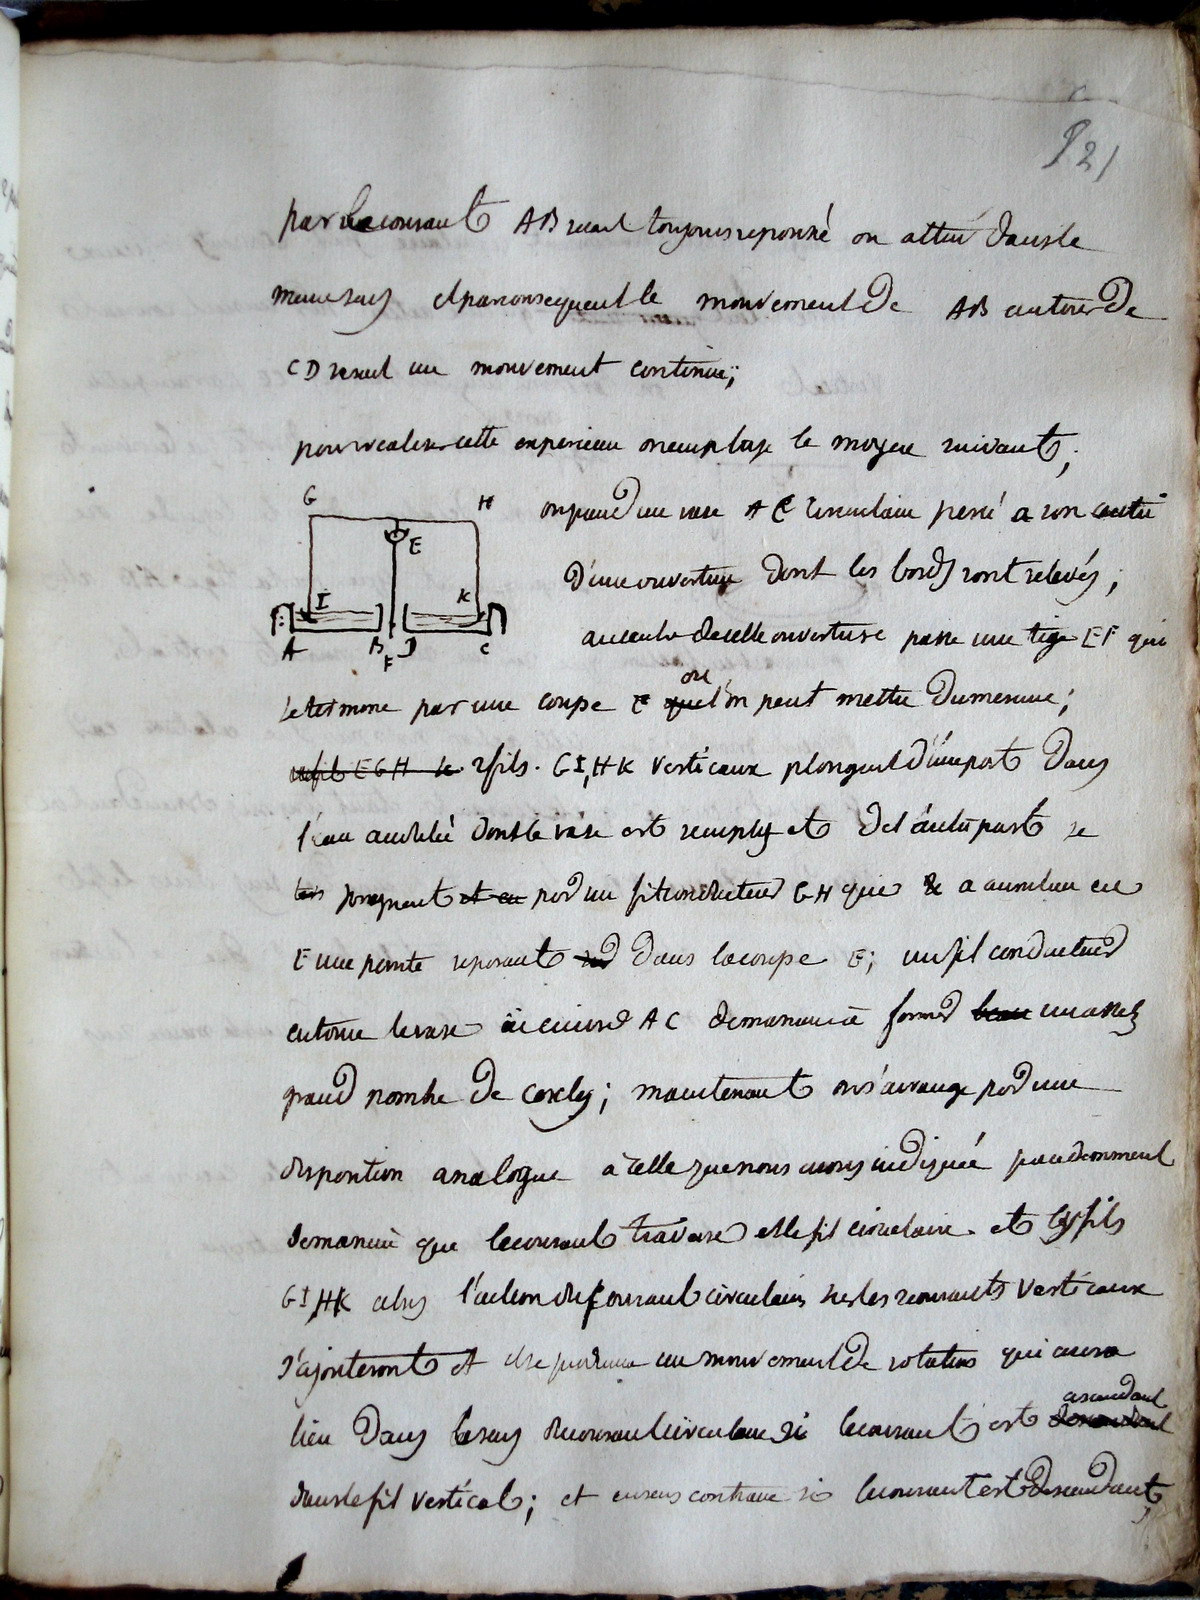 821
par le courant AB serait toujours repoussé ou attiré dans le
meme sens et par consequent le mouvement de AB autour de
CD serait un mouvement continu;
pour realiser cette experience on emploie le moyen suivant;
G H
E
I K
A B F D C
on prend un vase AC circulaire percé a son centre
D'une ouverture dont les bords sont relevés;
au centre de cette ouverture passe une tige EF qui
se termine par une coupe E que où l'on peut mettre du mercure;
un fil EGH k 2 fils. GI, HK verticaux plongent d'une part Dans
l'eau acidulée dont le vase est rempli et de l'autre part se
joignent et en par un fil conducteur GH qui a au milieu en
E une pointe reposant dans la coupe E; un fil conducteur
entoure le vase AC de maniere à former beau un assez
grand nombre de cercles; maintenant on s'arrange par une
disposition analogue à celle que nous avons indiquée precedemment
de maniere que le courant traverse et le fil circulaire et les fils
GI, HK alors l'action du courant circulaire sur les courants verticaux
s'ajouteront et il se produira un mouvement de rotation qui aura
lieu Dans le sens du courant circulaire si le courant est descendant ascendant
dans le fil vertical; et en sens contraire si le courant est descendant,